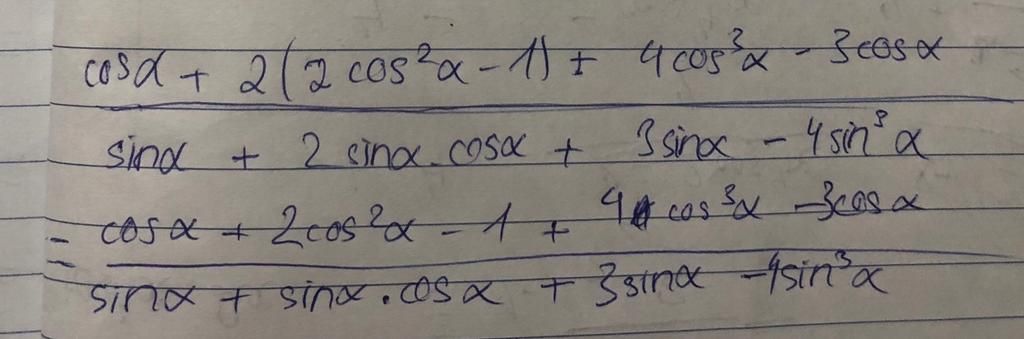 cosα + 2(2cos²α - 1) + 4cos³α - 3cosα
sinα + 2 sinα.cosα + 3sinα - 4sin³α
= cosα + 2cos²α - 1 + 4cos³α - 3cosα
sinα + sinα.cosα + 3sinα - 4sin³α